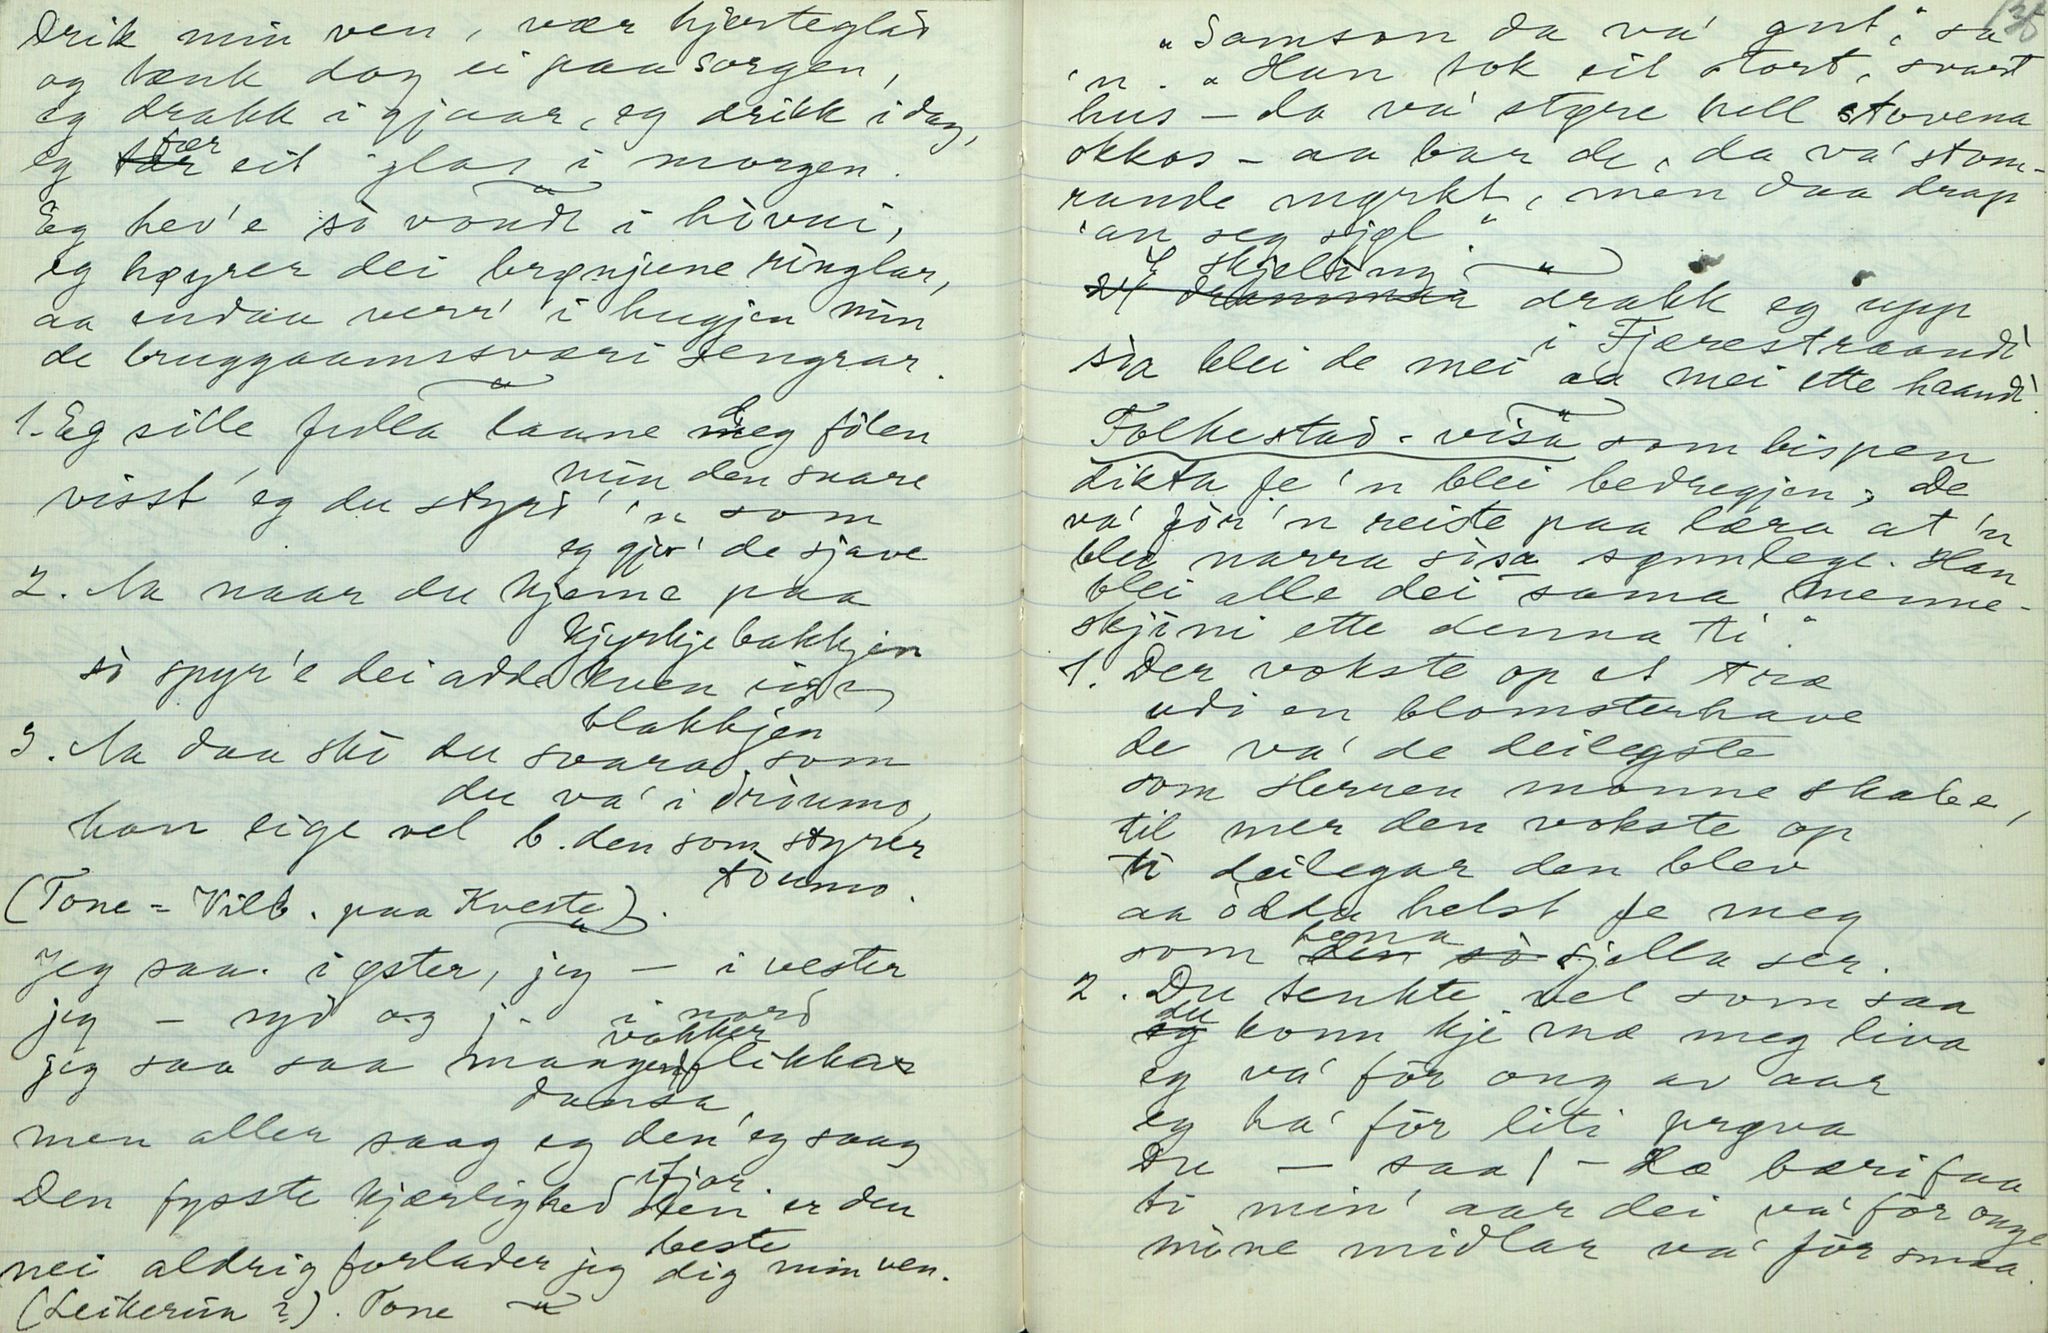 Drik min ven, vær hjerteglad
og tænk dog ei paa sorgen,
eg drakk i gjaar, eg drikk idag,
eg fær eit glas i morgen.
Eg hev'e so vondt i hovui,
eg høyrer dei brønjune ringlar,
aa endaa verr' i hugjen min
de bruggaamssværi sengrar.
1. Eg sille fulla laane deg folen
min den snare
visst eg du styrd' 'n som
eg gjor' de sjave
2. Aa naar du kjeme paa
kjyrkjebakkjen
so spyr'e dei adde kven eig
blakkjen
3. Aa daa sko du svara som
du va' i drøumo,
han eige vel b. den som styrer
tøumo.
(Tone = Vilb. paa Kveste).
Jeg saa i øster, jeg — i vester
jeg — syd og j- i nord
jeg saa saa mangen vakker flikka
dansa
men aller saag eg den eg saag
ifjor
Den fysste kjærlighed den er den
beste
nei aldrig forlader jeg dig min ven.
(Leikerim ?). Tone
135
"Samson da va' gut", sa
'n. "Han tok eit stort, svart
hus — da va' større hell stovena
okkos — aa bar de, da va' stom-
rande myrkt, men daa drap
'an seg sjøl".
4 skjeling drakk eg upp
i Fjærestraandi
sia blei de mei aa mei ette haandi
Folkestad-visa som bispen
dikta fe 'n blei bedregjen; De
va' før 'n reiste paa læra at 'n
blei narra sisa synnlege. Han
blei alle dei sama menne-
skjini ette denna ti."
1. Der vokste op et træ
udi en blomsterhave
de va' de deilegste
som Herren monne skabe,
til mer den vokste op
ti deilegar den blev
aa odda helst fe meg
som hena sjella ser.
2. Du tenkte vel som saa
du konn kje mæ meg liva
eg va' for ong av aar
eg ha' for liti prøva
Du — saa! — Læ bæri faa
ti min' aar dei va' for onge
mine midlar va' for smaa.